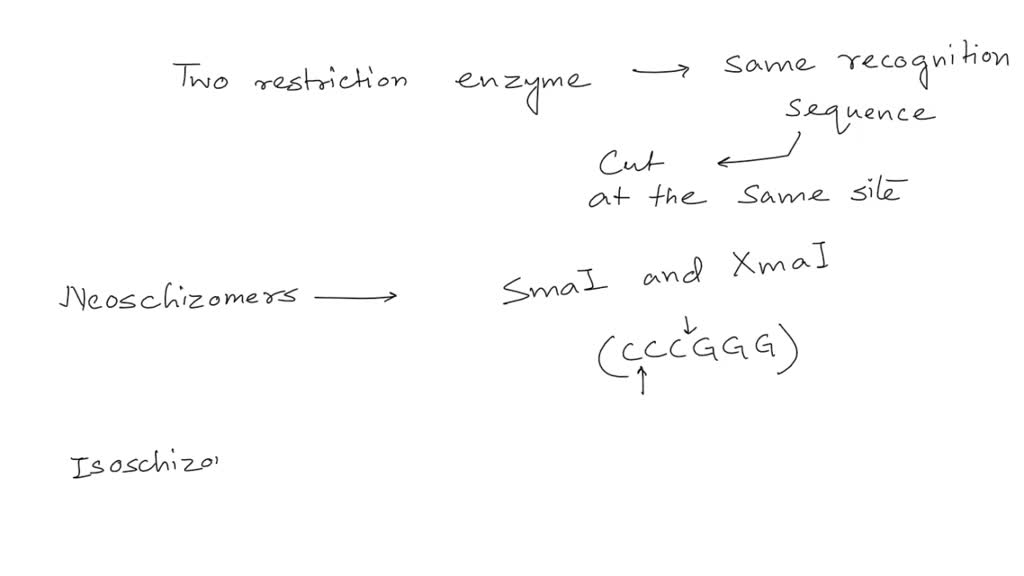 Two restriction enzyme → same recognition
sequence
Cut ←
at the same site
Neoschizomers → SmaI and XmaI
↓
(CCCGGG)
↑
Isoschizo